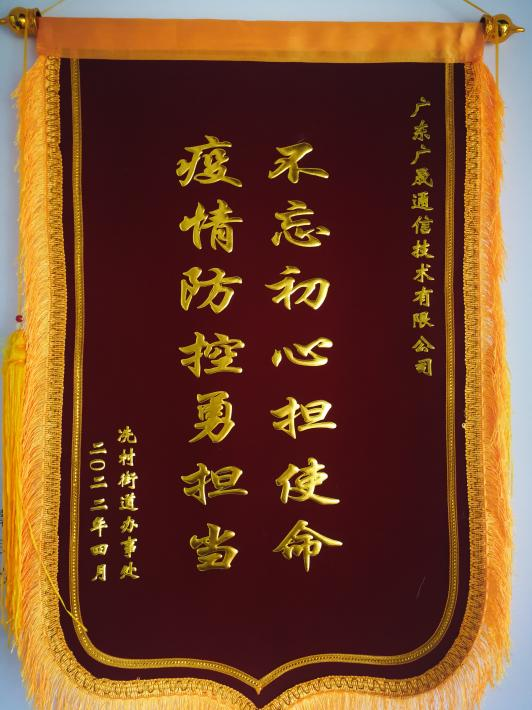 广东广晟通信技术有限公司
不忘初心担使命
疫情防控勇担当
冼村街道办事处
二〇二二年四月